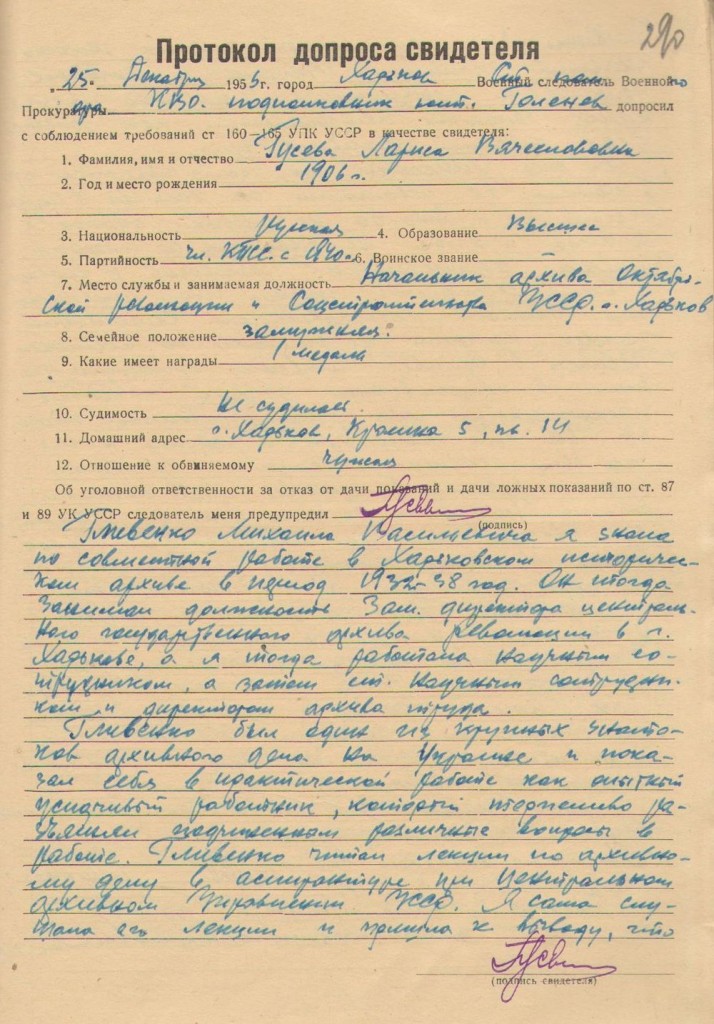 290
Протокол допроса свидетеля
„25“ Декабря 1955 г. город Харьков Военный следователь Военной
Прокуратуры КВО. подполковник юст. допросил
с соблюдением требований ст 160—165 УПК УССР в качестве свидетеля:
1. Фамилия, имя и отчество Гусева Лариса Вячеславовна
2. Год и место рождения 1906 г.
3. Национальность русская 4. Образование Высшее
5. Партийность чл. КПСС с 1940 г. 6. Воинское звание –
7. Место службы и занимаемая должность Начальник архива Октябрь-
ской революции и Соцстроительства УССР г. Харьков
8. Семейное положение замужняя.
9. Какие имеет награды 1 медаль
10. Судимость Не судилась
11. Домашний адрес г. Харьков, 5, кв. 14
12. Отношение к обвиняемому чужая
Об уголовной ответственности за отказ от дачи показаний и дачи ложных показаний по ст. 87
и 89 УК УССР следователь меня предупредил
(подпись)
Гливенко Михаила Васильевича я знала
по совместной работе в Харьковском историчес-
ком архиве в период 1932-38 год. Он тогда
занимал должность Зам. директора централь-
ного государственного архива революции в г.
Харькове, а я тогда работала научным со-
трудником, а затем ст. научным сотрудни-
ком и директором архива труда.
Гливенко был один из крупных знато-
ков архивного дела на Украине и пока-
зал себя в практической работе как опытный
усидчивый работник, который терпеливо ра-
зъяснял подчиненным различные вопросы в
работе. Гливенко читал лекции по архивно-
му делу в аспирантуре при Центральном
архивном Управлении УССР. Я сама слу-
шала его лекции и пришла к выводу, что
(подпись свидетеля)